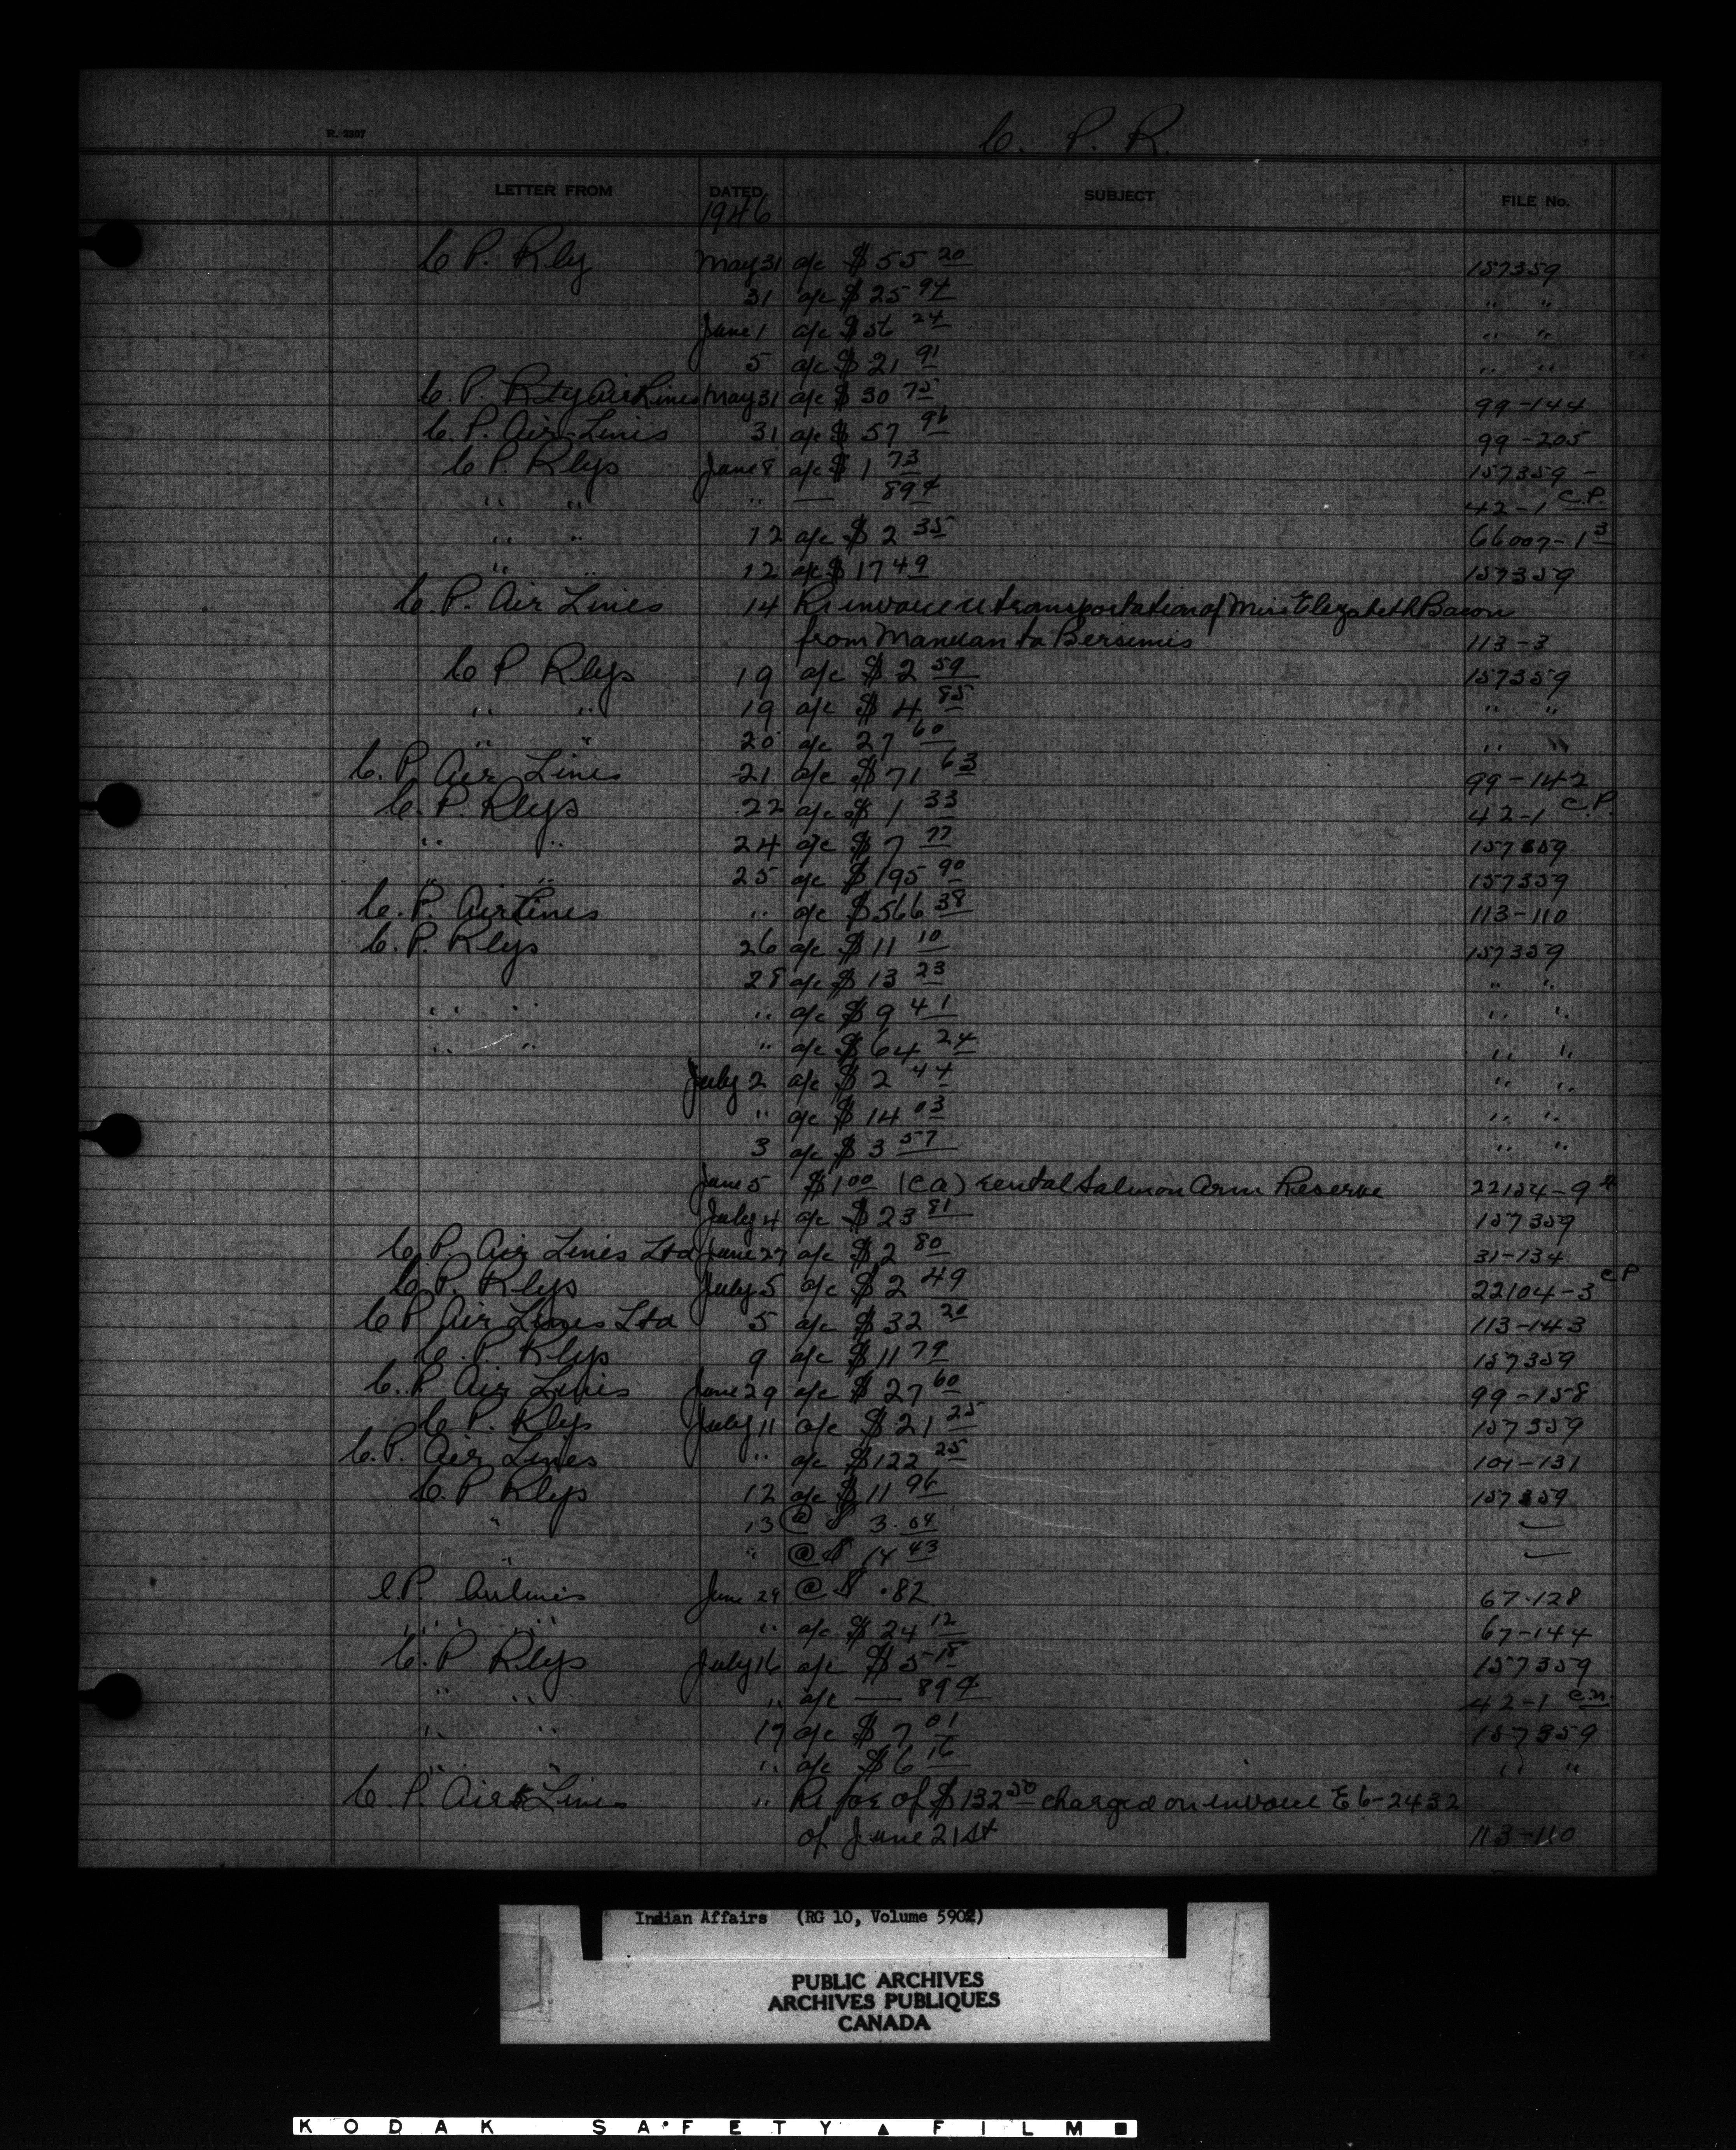 R. 2307
C. P. R.
LETTER FROM DATED SUBJECT FILE No.
1946
C P. Rly May 31 a/c $55 20 157359
31 a/c $25 94 " "
June 1 a/c $56 24 " "
5 a/c $21 91 " "
C. P. Air Lines May 31 a/c $30 75 99-144
C. P. Air Lines 31 a/c $57 96 99-205
C P. Rlys June 8 a/c $1 73 157359 -
" " " — 89¢ 42-1 C.P.
" " 12 a/c $2 35 66007-1 3
" " 12 a/c $17 49 157359
C. P. Air Lines 14 Re invoice re transportation of Miss Elizabeth Bacon
from Manuan to Bersimis 113-3
C P Rlys 19 a/c $2 59 157359
" " 19 a/c $4 85 " "
" " 20 a/c 27 60 " "
C. P. Air Lines 21 a/c $71 63 99-142
C. P. Rlys 22 a/c $1 33 42-1 C.P.
" " 24 a/c $7 77 157359
" " 25 a/c $195 90 157359
C. P. Air Lines " a/c $566 38 113-110
C. P. Rlys 26 a/c $11 10 157359
28 a/c $13 23 " "
" " " a/c $9 41 " "
" " " a/c $64 24 " "
July 2 a/c $2 44 " "
" a/c $14 03 " "
3 a/c $3 57 " "
June 5 $1 00 (ca) rental Salmon Arm Reserve 22154-9
July 4 a/c $23 81 157359
C. P. Air Lines Ltd June 27 a/c $2 80 31-134
C. P. Rlys July 5 a/c $2 49 22104-3 C P
C P Air Lines Ltd 5 a/c $32 20 113-143
C. P. Rlys 9 a/c $11 79 157359
C. P. Air Lines June 29 a/c $27 60 99-158
C. P. Rlys July 11 a/c $21 25 157359
C. P. Air Lines " a/c $122 25 101-131
C. P Rlys 12 a/c $11 96 157359
" 13 @ $ 3.64
" " @ $ 14 43
C P. Airlines June 29 @ $ .82 67-128
" " " " a/c $24 12 67-144
C. P Rlys July 16 a/c $5 18 157359
" " " a/c — 89¢ 42-1 C.N.
" " 17 a/c $7 01 157359
" " " a/c $6 16 " "
C. P. Air Lines " Re for of $132 50 charged on invoice E6-2432
of June 21st 113-110
Indian Affairs (RG 10, Volume 5902)
PUBLIC ARCHIVES
ARCHIVES PUBLIQUES
CANADA
KODAK SAFETY FILM